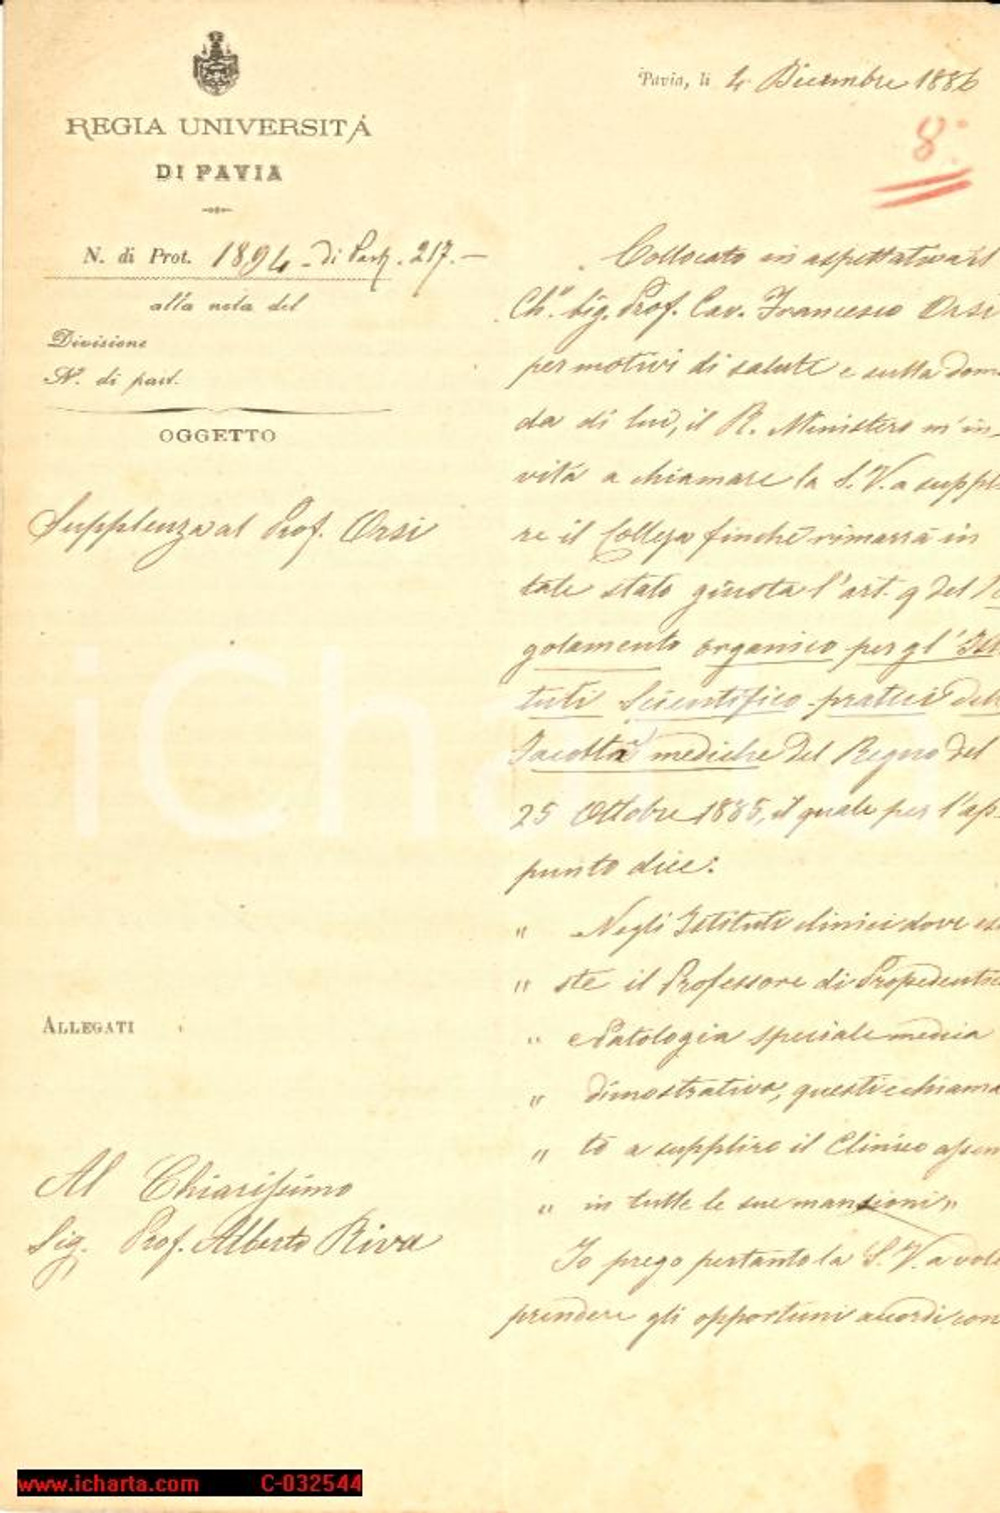 REGIA UNIVERSITÁ
DI PAVIA
N. di Prot. 1894 - di Part. 217. -
alla nota del
Divisione
N.° di part.
OGGETTO
Supplenza al Prof. Orsi
ALLEGATI
Al Chiarissimo
Sig. Prof. Alberto Riva
Pavia, li 4 Dicembre 1886
8°
Collocato in aspettativa il
Ch.° Sig. Prof. Cav. Francesco Orsi
per motivi di salute e sulla doman
da di lui, il R. Ministero m'in-
vità a chiamare la S. V. a suppli
re il Collega finchè rimarrà in
tale stato giusta l'art. 9 del Re
golamento organico per gl'Isti
tuti Scientifico-pratici delle
Facoltà mediche del Regno del
25 Ottobre 1885, il quale per l'ap-
punto dice:
" Negli Istituti clinici dove esi
" ste il Professore di Propedeutica
" e Patologia speciale medica
" dimostrativa, questi è chiama
" to a supplire il Clinico assen
" in tutte le sue mansioni "
Io prego pertanto la S. V. a vole
prendere gli opportuni accordi con
iCharta
www.icharta.com C-032544